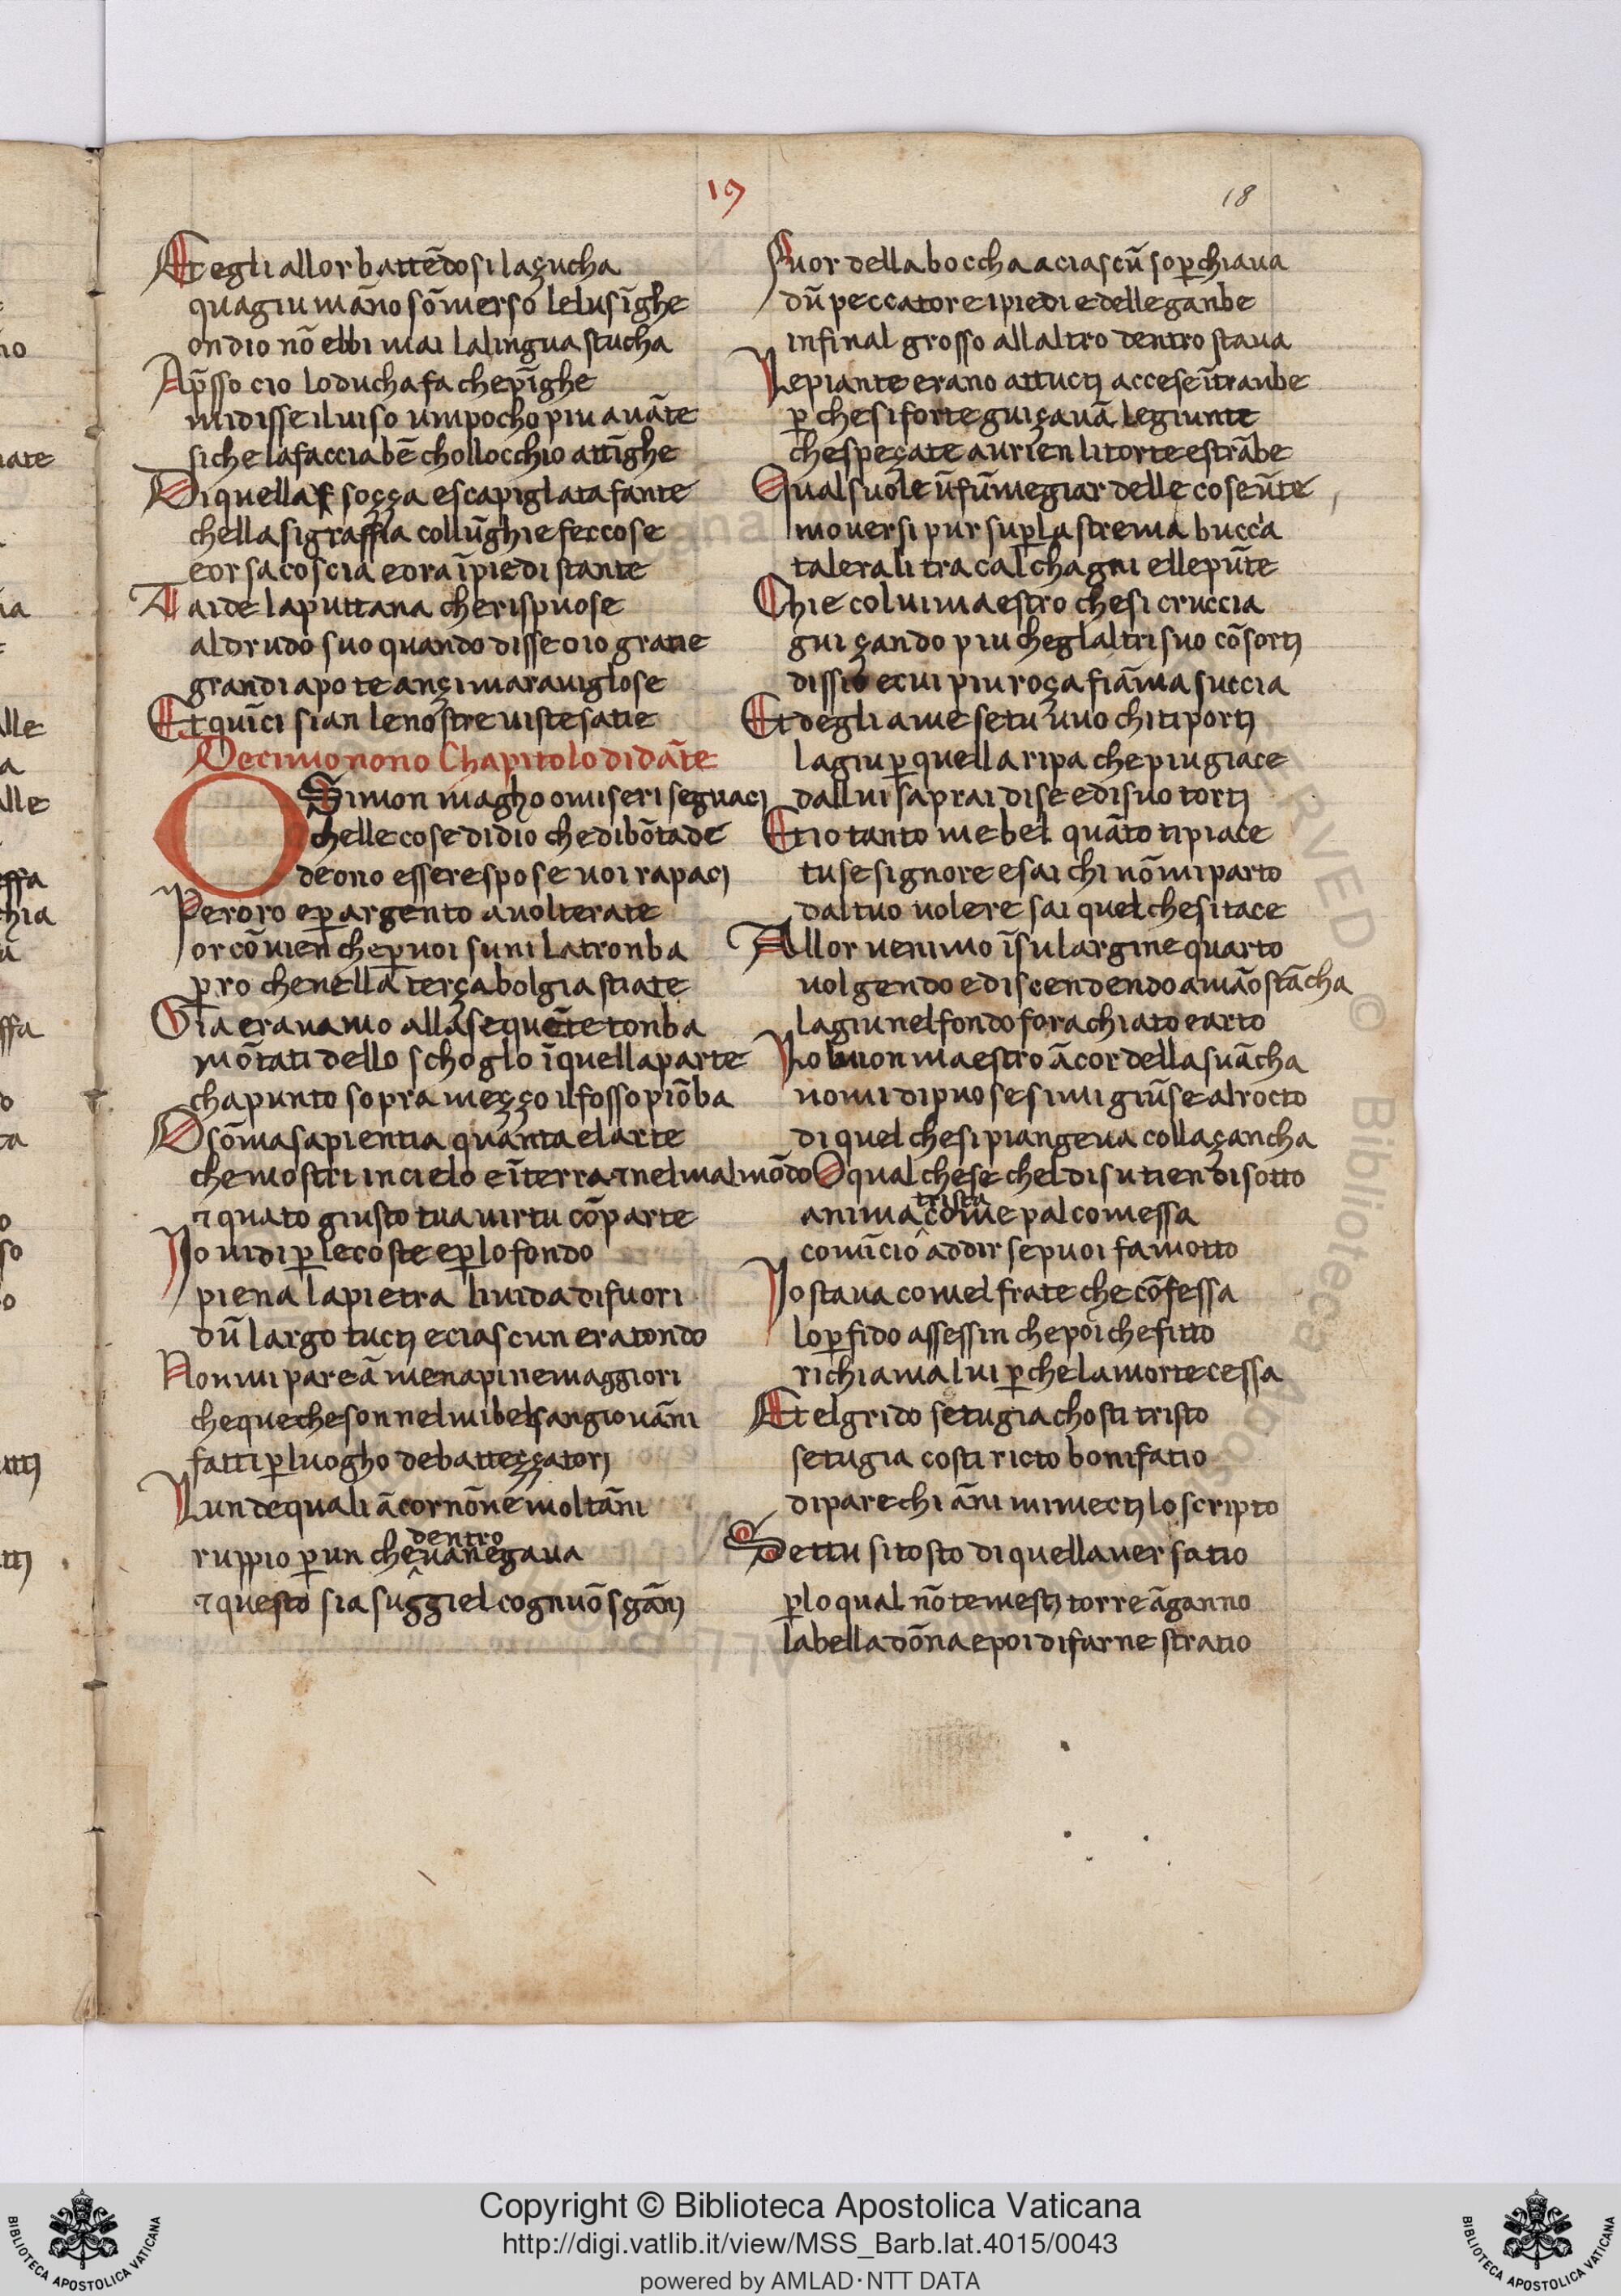 19
18
Et egli allor battēdosi laçucha
quagiu māno sōmerso lelusīghe
ondio nō ebbi mai lalingua stucha
Ap̄sso cio loduchafa chepīghe
midisse iluiso umpocho piu auāte
siche lafaccia bē chollocchio attīghe
Di quella soçça escapiglata fante
chella sigraffia collūghie feccose
eor sacoscia eora īpiedi stante
Taide laputtana cherispuose
aldrudo suo quando disse oio gratie
grandi apo te ançi marauiglose
Et quīci sian lenostre uiste satie
Decimonono Chapitolo didāte
O Simon magho omiseri seguaci
chelle cose didio che dibōtade
deono essere spose uoi rapaci
Per oro ep̱ argento auolterate
or cōuien chep̱uoi suni latronba
p̱ro chenella terça bolgia stiate
Gia erauamo alla sequēte tonba
mōtati dello schoglo īquella parte
chapunto sopra meçço ilfosso piōba
O sōma sapientia quanta elarte
che mostri incielo eīterra ⁊nelmalmōdo
⁊ quato giusto tua uirtu cōparte
Io uidi p̱ lecoste ep̱ lofondo
piena lapietra liuida difuori
dū largo tucti eciascun era tondo
Non mi pareā menapi nemaggiori
che que cheson nelmi bel sangiouāni
fatti p̱ luogho debatteççatori
Lun dequali ācor nōn e moltāni
dentro
ruppio p̱ un che uānegaua
⁊ questo sia suggiel cognuō sgāni
Fuor della boccha aciascū sop̱chiaua
dū peccatore ipiedi edelleganbe
infinal grosso allaltro dentro staua
Le piante erano attucti accese ītranbe
p̱ che si forte guiçauā legiunte
che speçate aurien litorte estrābe
Qual suole ūfūmegiar delle cose ūte
mouersi pur sup̱ lastrema buccia
tal era li tra calchagni ellepūte
Chi e colui maestro chesi cruccia
guiçando piu che glaltri suo cōsorti
dissio ecui piu roça fiāma succia
Et degli ame setu uuo chi tiporti
lagiu p̱ quella ripa che piugiace
dallui saprai dise edisuo torti
Et io tanto me bel quāto tipiace
tuse signore esai chi nōmiparto
dal tuo uolere sai quel chesitace
Allor venimo īsu largine quarto
uolgendo ediscendendo amāo stācha
lagiu nelfondo forachiato earto
Lo buon maestro ācor della suācha
nomi dipuose simi giūse alrocto
di quel chesi piangeua collaçancha
O qual chese chel disu tien disotto
trista
anima come pal comessa
comīcio addir sepuoi famotto
Io staua comel frate che cōfessa
lop̱fido assessin che poi chefitto
richiama lui p̱ che lamorte cessa
Et el grido setugia chosti tristo
setugia costi ricto bonifatio
di parechi āni mimecti lo scripto
Settu si tosto di quella uer satio
p̱ lo qual nō temesti torre āganno
la bella dōna epoi difarne stratio
Copyright © Biblioteca Apostolica Vaticana
http://digi.vatlib.it/view/MSS_Barb.lat.4015/0043
powered by AMLAD·NTT DATA
BIBLIOTECA APOSTOLICA VATICANA
BIBLIOTECA APOSTOLICA VATICANA